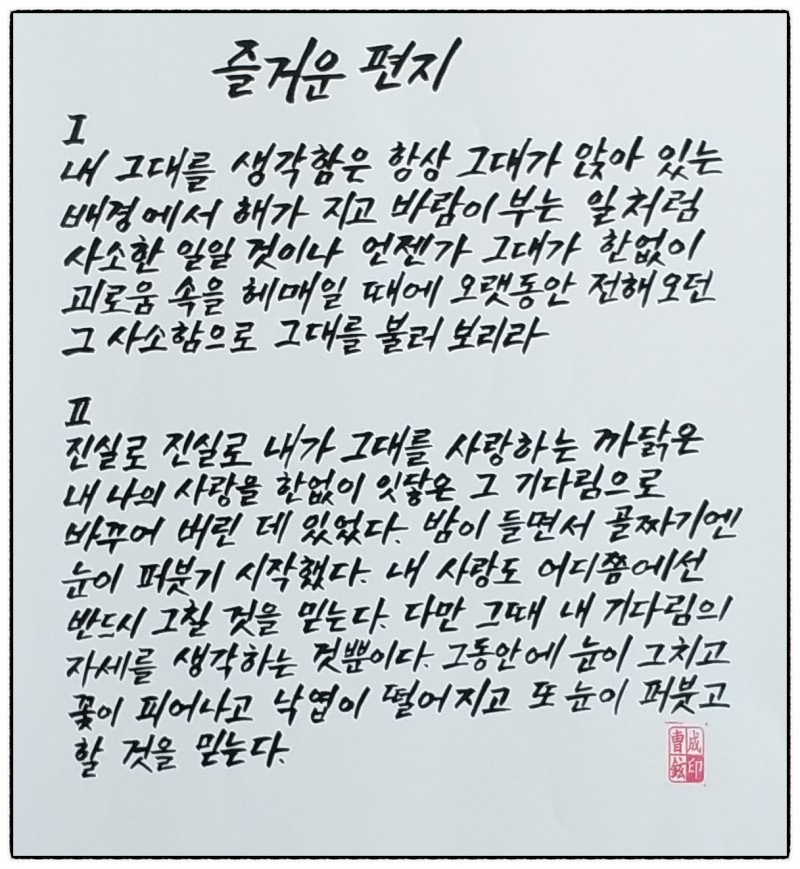 즐거운 편지
I
내 그대를 생각함은 항상 그대가 앉아 있는
배경에서 해가 지고 바람이 부는 일처럼
사소한 일일 것이나 언젠가 그대가 한없이
괴로움 속을 헤매일 때에 오랫동안 전해오던
그 사소함으로 그대를 불러 보리라
II
진실로 진실로 내가 그대를 사랑하는 까닭은
내 나의 사랑을 한없이 잇닿은 그 기다림으로
바꾸어 버린 데 있었다. 밤이 들면서 골짜기엔
눈이 퍼붓기 시작했다. 내 사랑도 어디쯤에선
반드시 그칠 것을 믿는다. 다만 그때 내 기다림의
자세를 생각하는 것뿐이다. 그동안에 눈이 그치고
꽃이 피어나고 낙엽이 떨어지고 또 눈이 퍼붓고
할 것을 믿는다.
曺成
鉉印